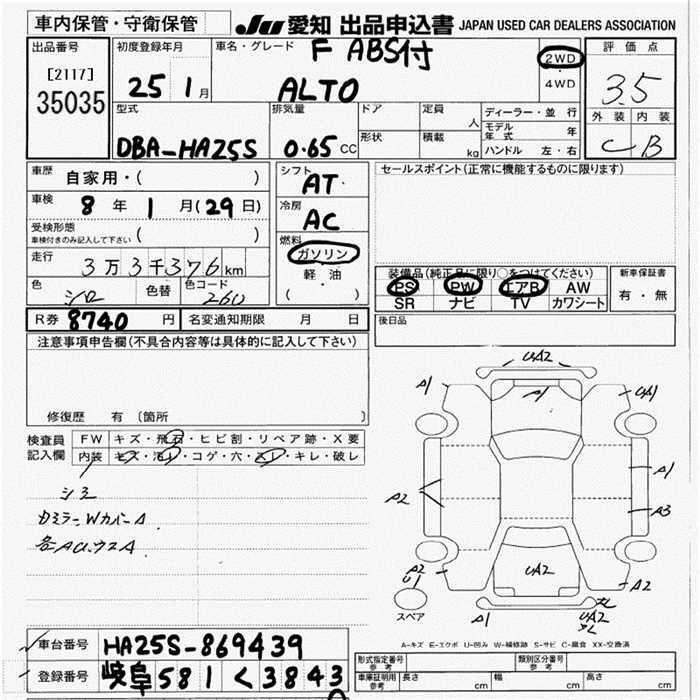 車内保管・守衛保管
JU 愛知 出品申込書 JAPAN USED CAR DEALERS ASSOCIATION
出品番号
[2117]
35035
初度登録年月
25 1月
車名・グレード
F ABS付
ALTO
2WD
・
4WD
評価点
3.5
外装 内装
C B
型式
DBA-HA25S
排気量
0.65 CC
ドア
形状
定員
人
積載
kg
ディーラー・並 行
モデル年式 年
ハンドル 左・右
車歴
自家用・( )
車検
8年 1月(29日)
受検形態
車検付きのみ記入して下さい ( )
走行
3万3千376km
色
シロ
色替
色コード
26U
シフト
AT
冷房
AC
燃料
ガソリン
・
軽・油
( ・ )
セールスポイント(正常に機能するものに限ります)
装備品(純正品に限り○をつけてください)
PS PW エアB AW
SR ナビ TV カワシート
新車保証書
有・無
R券 8740 円
名変通知期限 月 日
後日品
注意事項申告欄(不具合内容等は具体的に記入して下さい)
修復歴 有〔箇所 〕
検査員
記入欄
FW キズ・飛石・ヒビ割・リペア跡・X要
内装 キズ・汚レ・コゲ・穴・スレ・キレ・破レ
各AU.ウスA
UA2
A1
A1
UA1
A1
A3
A2
A2
U1
UA2
A2
A1
UA2
スペア
A-キズ E-エクボ U-凹み W-補修跡 S-サビ C-腐食 XX-交換済
車台番号 HA25S-869439
登録番号 岐阜 581 く 3843
形式指定番号
参考
類別区分番号
参考
車庫証明用
参考
長さ cm 幅 cm 高さ cm